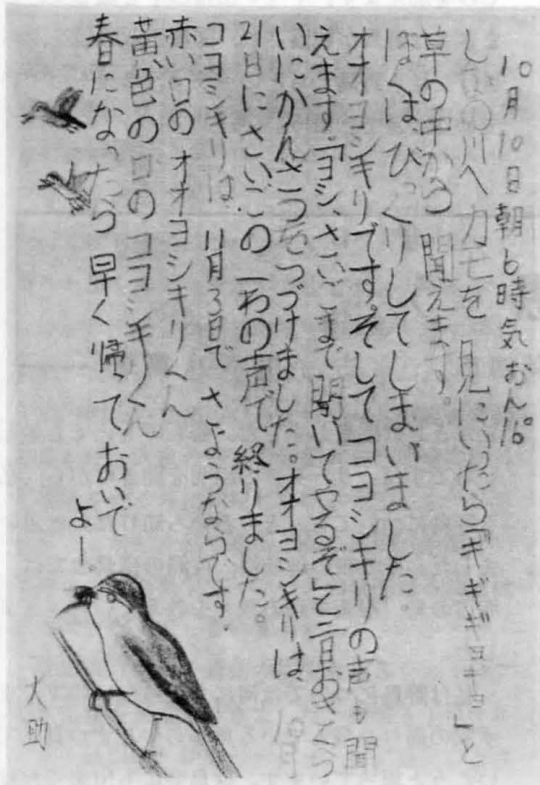 10月10日朝6時気おん12°
しなの川へカモを見にいったら「ギギギョギョ」と
草の中から聞えます。
ぼくは、びっくりしてしまいました。
オオヨシキリです。そしてコヨシキリの声も聞
えます。「ヨシ、さいごまで聞いてやるぞ」と二日おきくら
いにかんさつをつづけました。オオヨシキリは、10月
21日にさいごの一わの声で終りました。
コヨシキリは、11月3日でさようならです。
赤い口のオオヨシキリくん
黄色の口のコヨシキリくん
春になったら早く帰っておいで
よー。
大助